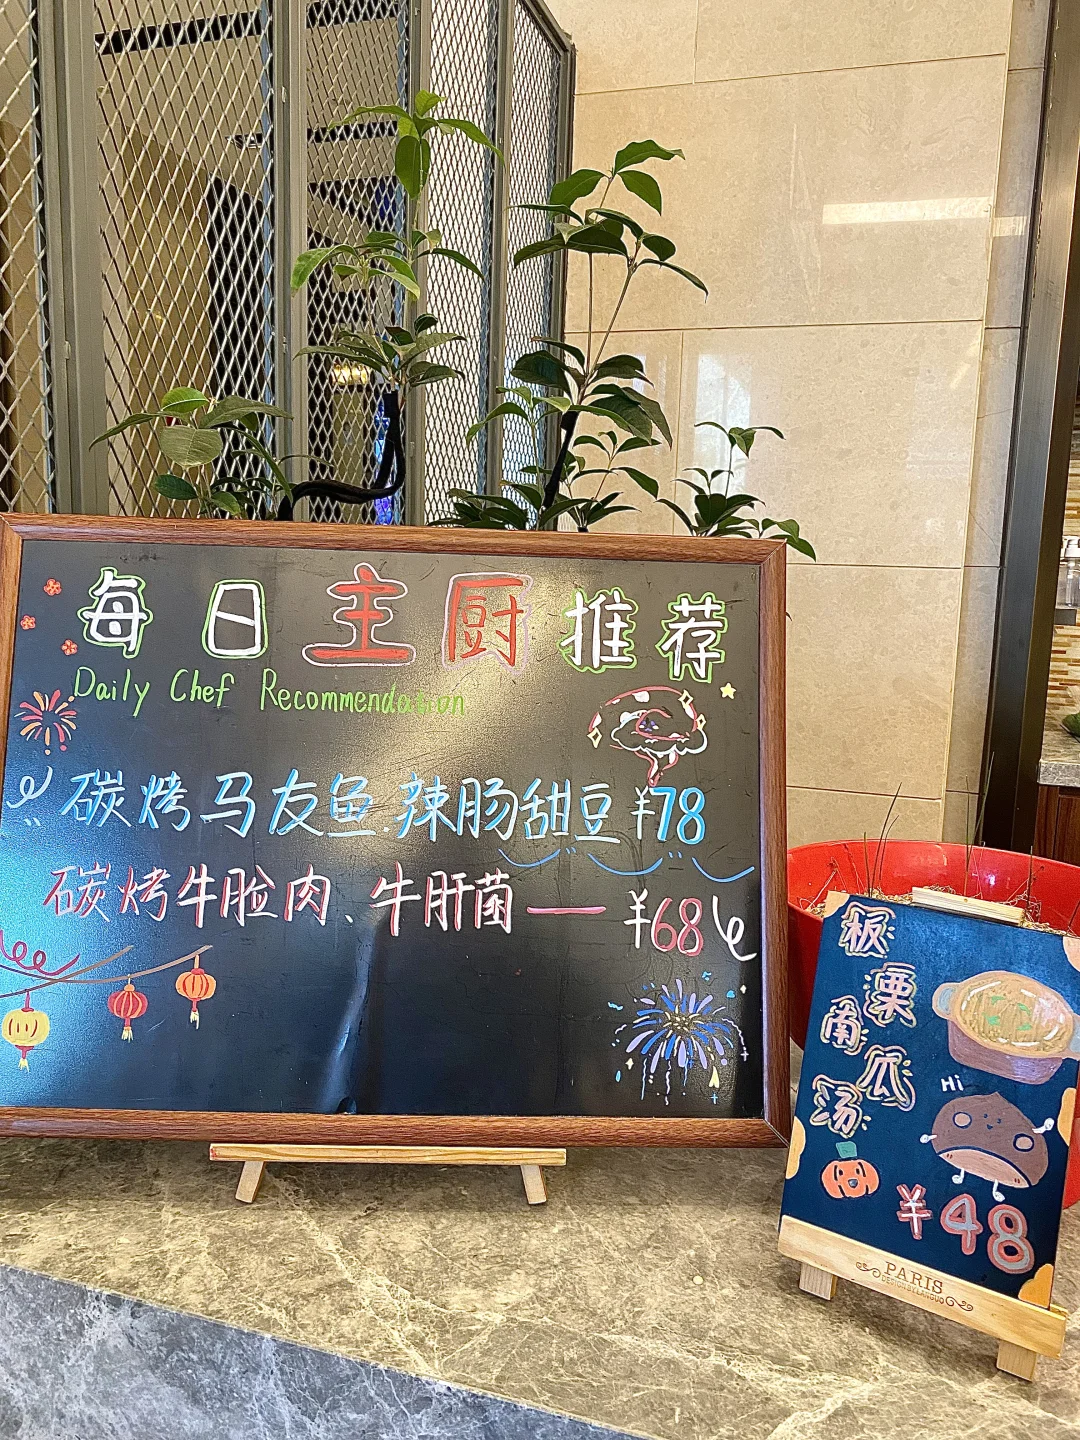 每日主厨推荐
Daily Chef Recommendation
碳烤马友鱼.辣肠甜豆 ¥78
碳烤牛脸肉、牛肝菌 — ¥68
板栗
南瓜
汤
Hi
¥48
PARIS